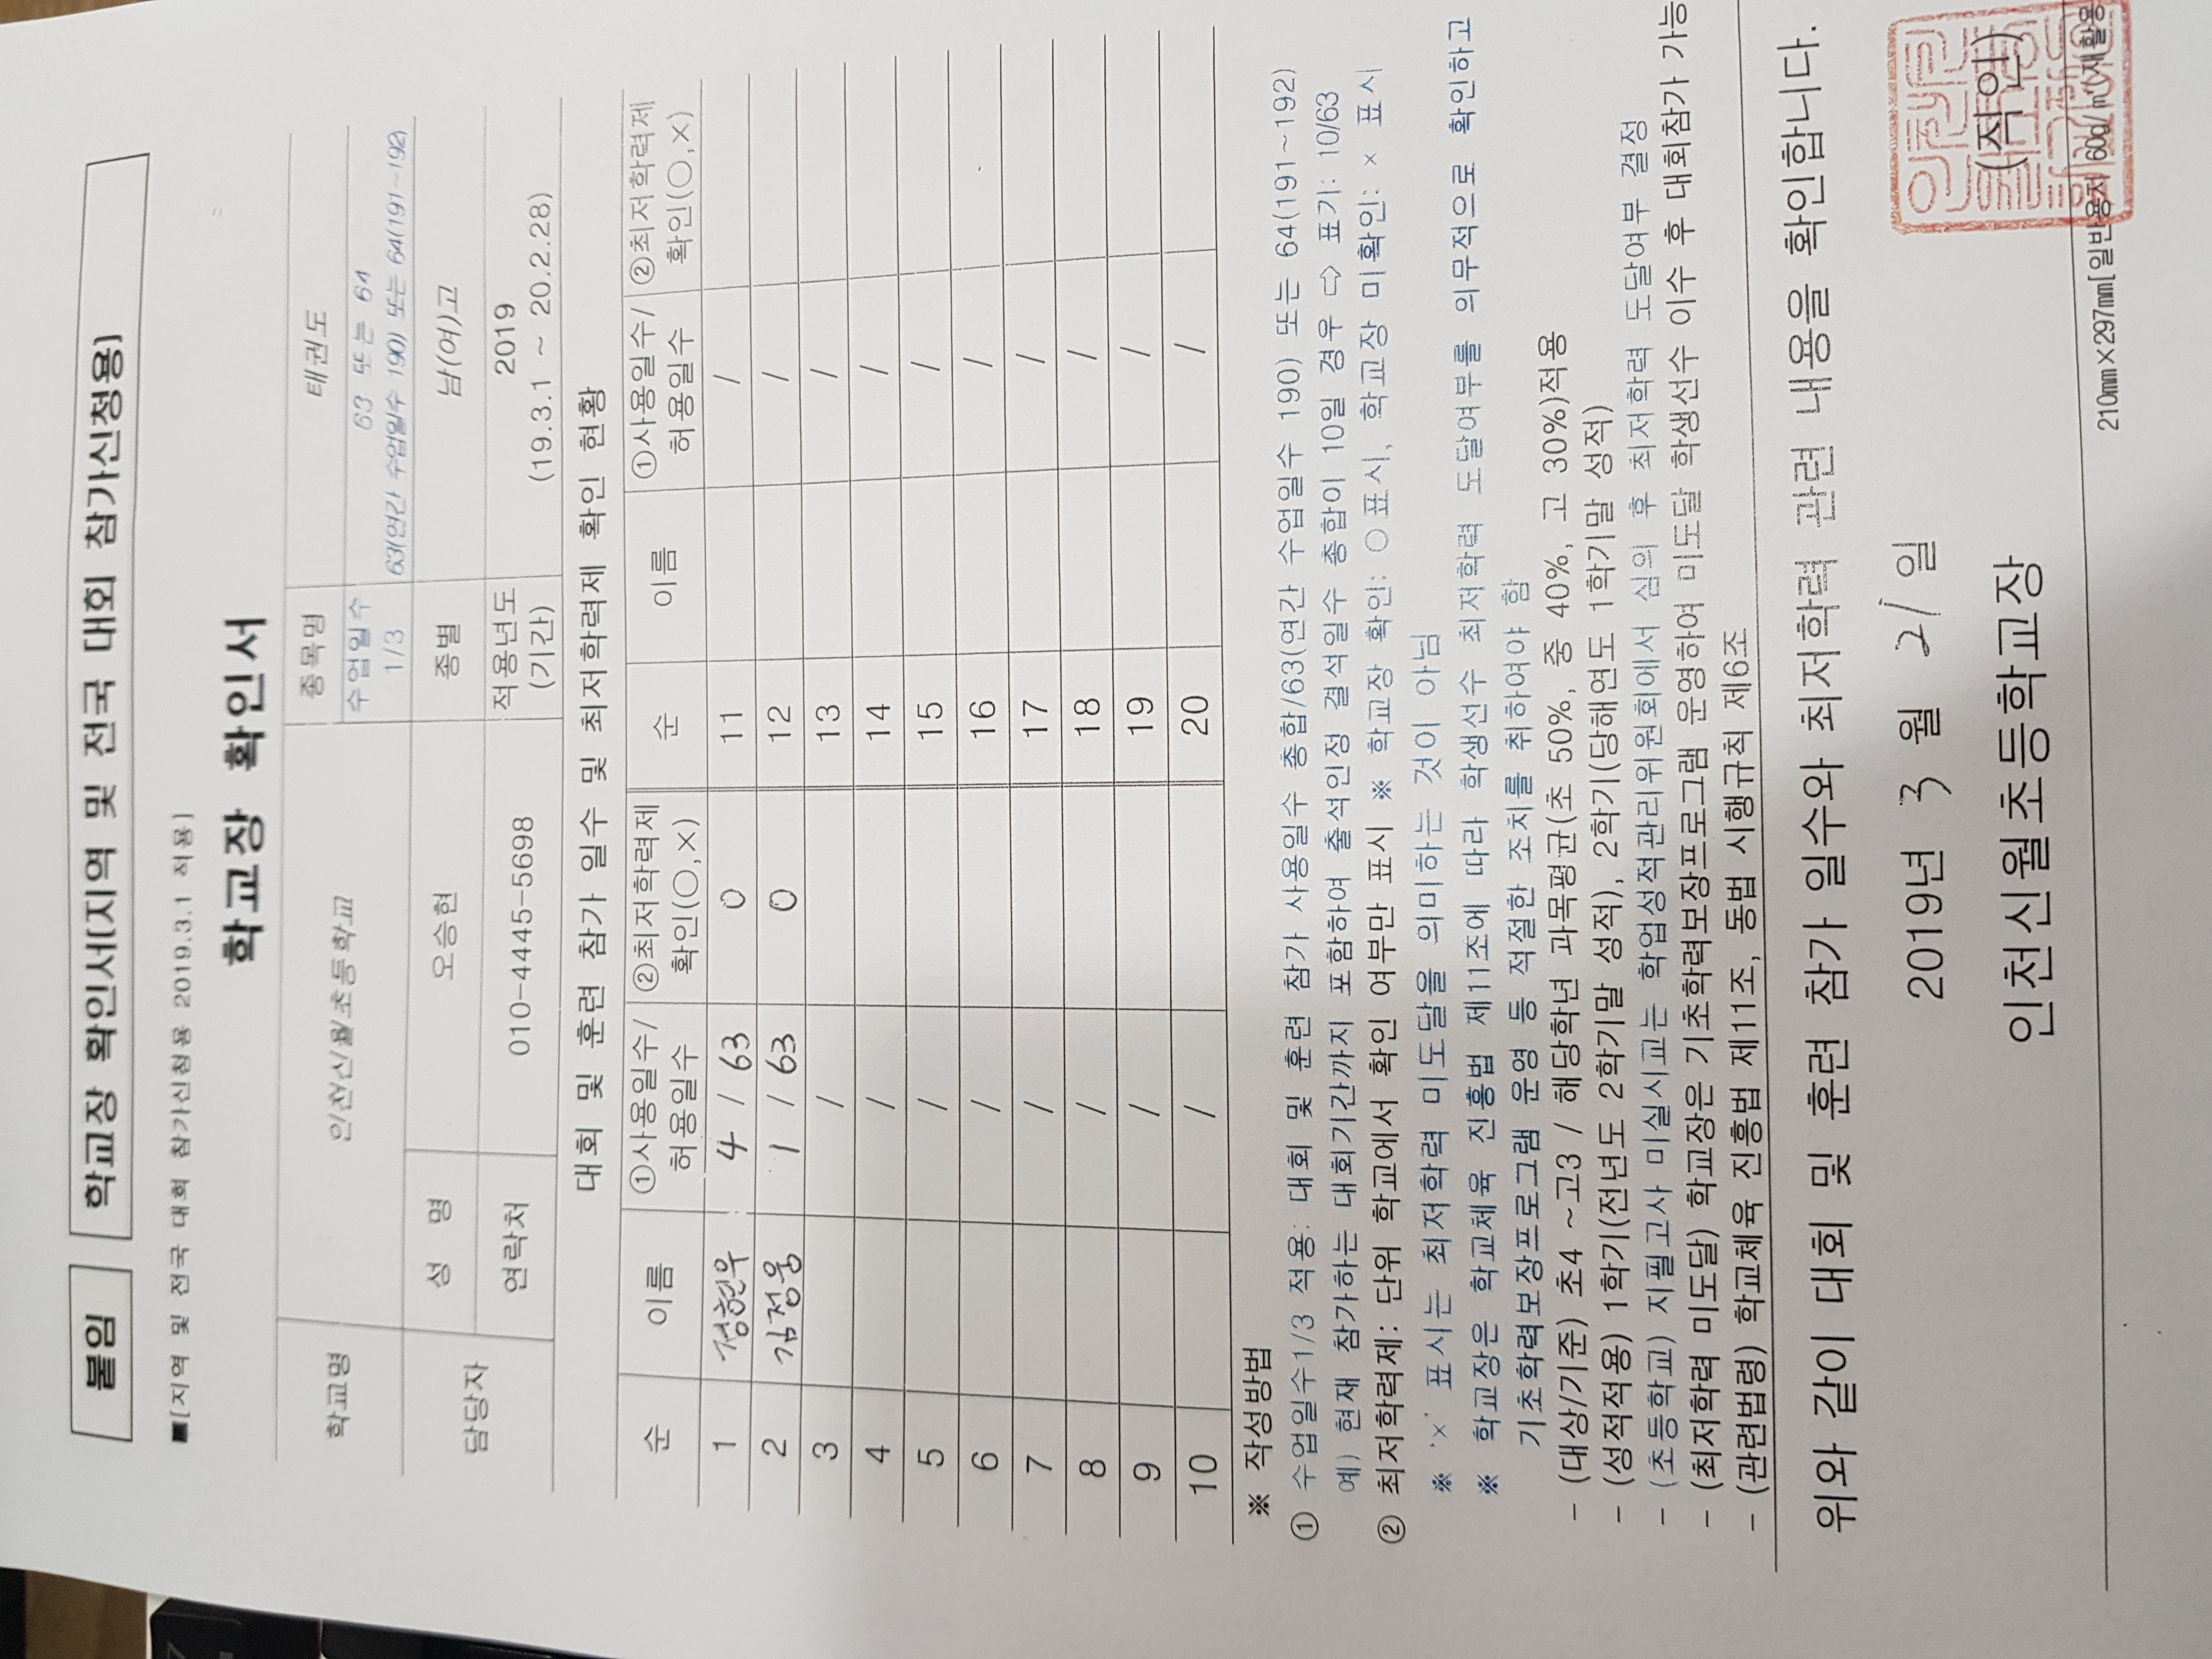 붙임 학교장 확인서(지역 및 전국 대회 참가신청용)
■[지역 및 전국 대회 참가신청용 2019.3.1 적용]
학교장 확인서
학교명 인천신월초등학교 종목명 태권도
수업일수 1/3 63 또는 64
63(연간 수업일수 190) 또는 64(191~192)
담당자 성 명 오승현 종별 남(여)고
연락처 010-4445-5698 적용년도 (기간) 2019
(19.3.1 ~ 20.2.28)
대회 및 훈련 참가 일수 및 최저학력제 확인 현황
순 이름 ①사용일수/허용일수 ②최저학력제 확인(○,×) 순 이름 ①사용일수/허용일수 ②최저학력제 확인(○,×)
1 정현우 4 / 63 ○ 11 /
2 김정웅 1 / 63 ○ 12 /
3 / 13 /
4 / 14 /
5 / 15 /
6 / 16 /
7 / 17 /
8 / 18 /
9 / 19 /
10 / 20 /
※ 작성방법
① 수업일수1/3 적용: 대회 및 훈련 참가 사용일수 총합/63(연간 수업일수 190) 또는 64(191~192)
예) 현재 참가하는 대회기간까지 포함하여 출석인정 결석일수 총합이 10일 경우 ⇨ 표기: 10/63
② 최저학력제: 단위 학교에서 확인 여부만 표시 ※ 학교장 확인: ○ 표시, 학교장 미확인: × 표시
※ '×' 표시는 최저학력 미도달을 의미하는 것이 아님
※ 학교장은 학교체육 진흥법 제11조에 따라 학생선수 최저학력 도달여부를 의무적으로 확인하고
기초학력보장프로그램 운영 등 적절한 조치를 취하여야 함
- (대상/기준) 초4 ~고3 / 해당학년 과목평균(초 50%, 중 40%, 고 30%)적용
- (성적적용) 1학기(전년도 2학기말 성적), 2학기(당해연도 1학기말 성적)
- (초등학교) 지필고사 미실시교는 학업성적관리위원회에서 심의 후 최저학력 도달여부 결정
- (최저학력 미도달) 학교장은 기초학력보장프로그램 운영하여 미도달 학생선수 이수 후 대회참가 가능
- (관련법령) 학교체육 진흥법 제11조, 동법 시행규칙 제6조
위와 같이 대회 및 훈련 참가 일수와 최저학력 관련 내용을 확인합니다.
2019년 3 월 21 일
인천신월초등학교장 (직인)
210㎜×297㎜[일반용지 60g/㎡(재활용